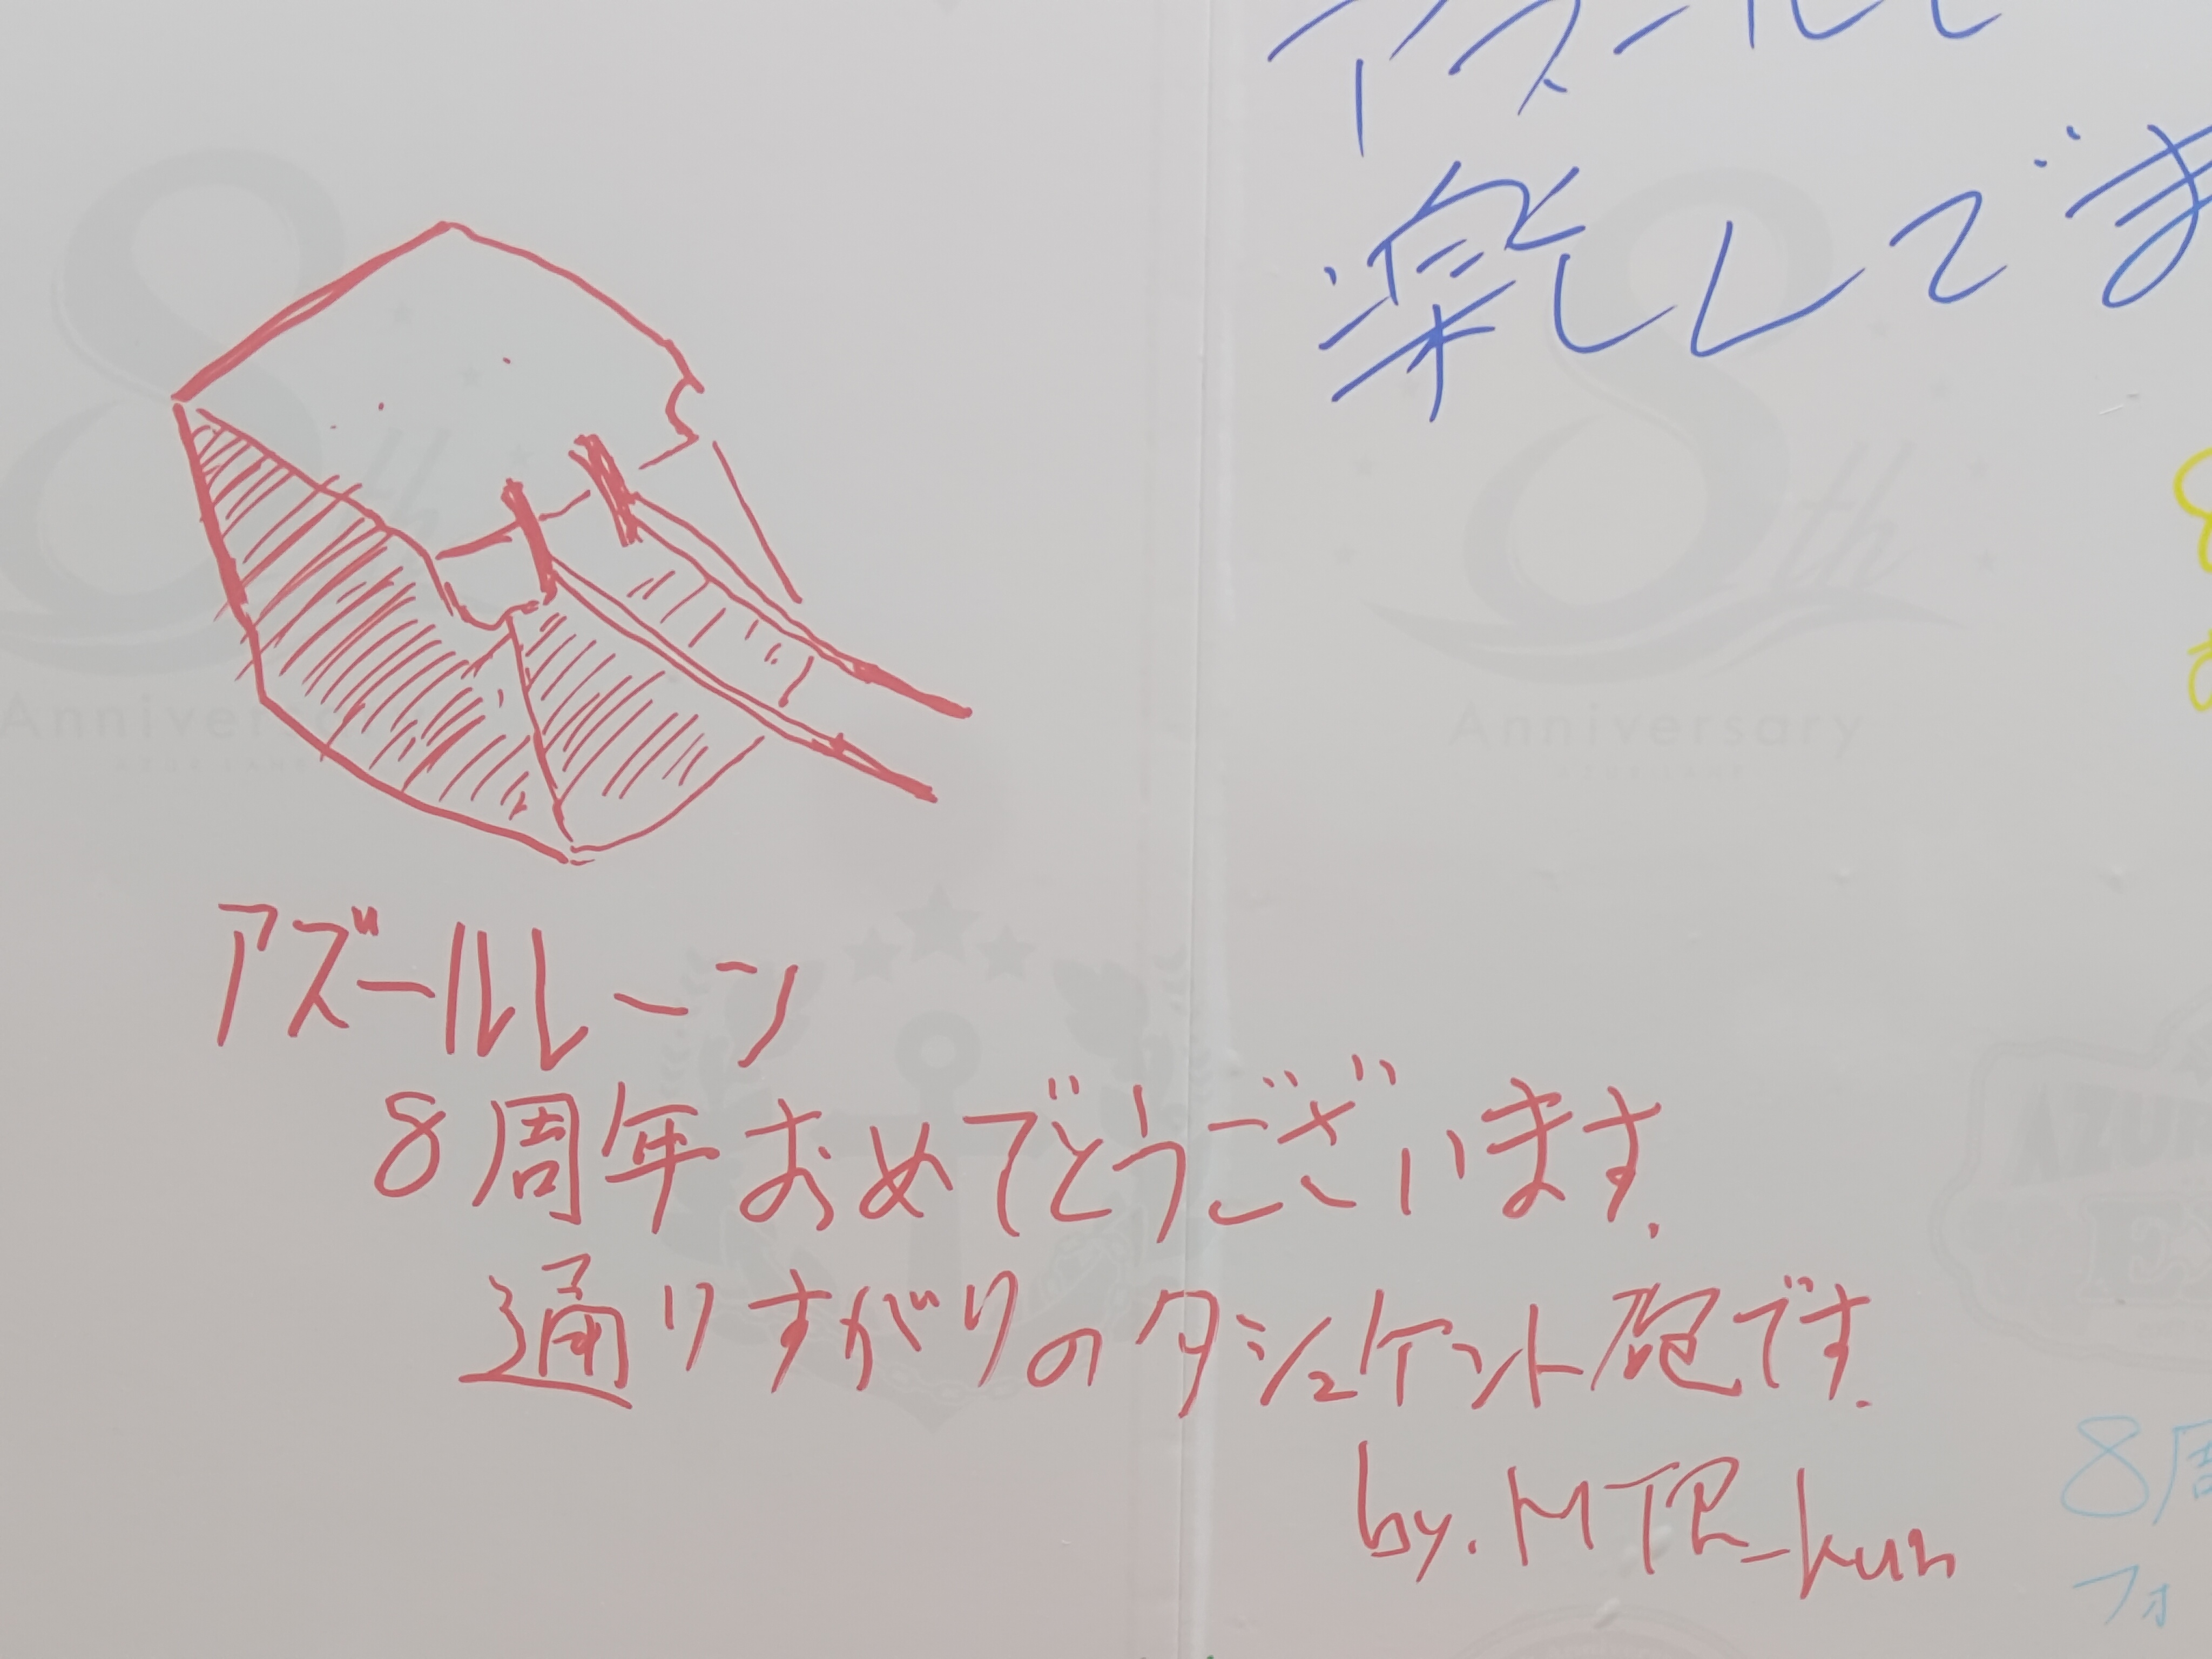 楽しんでま
アズールレーン
8周年おめでとうございます.
通りすがりのタシュケント砲です.
by. MTR_kun
8th
Anniversary
8th
Anniversary
8周
フォ